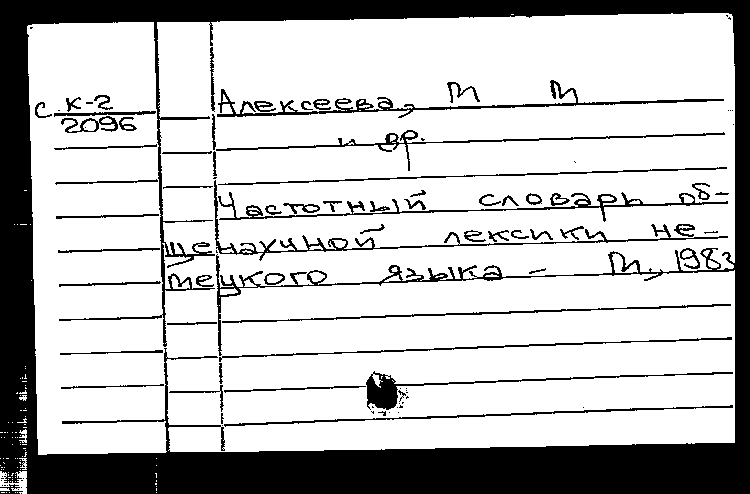 с. К-2
2096
Алексеева, М М
и др.
Частотный словарь об-
щенаучной лексики не-
мецкого языка - М., 1983